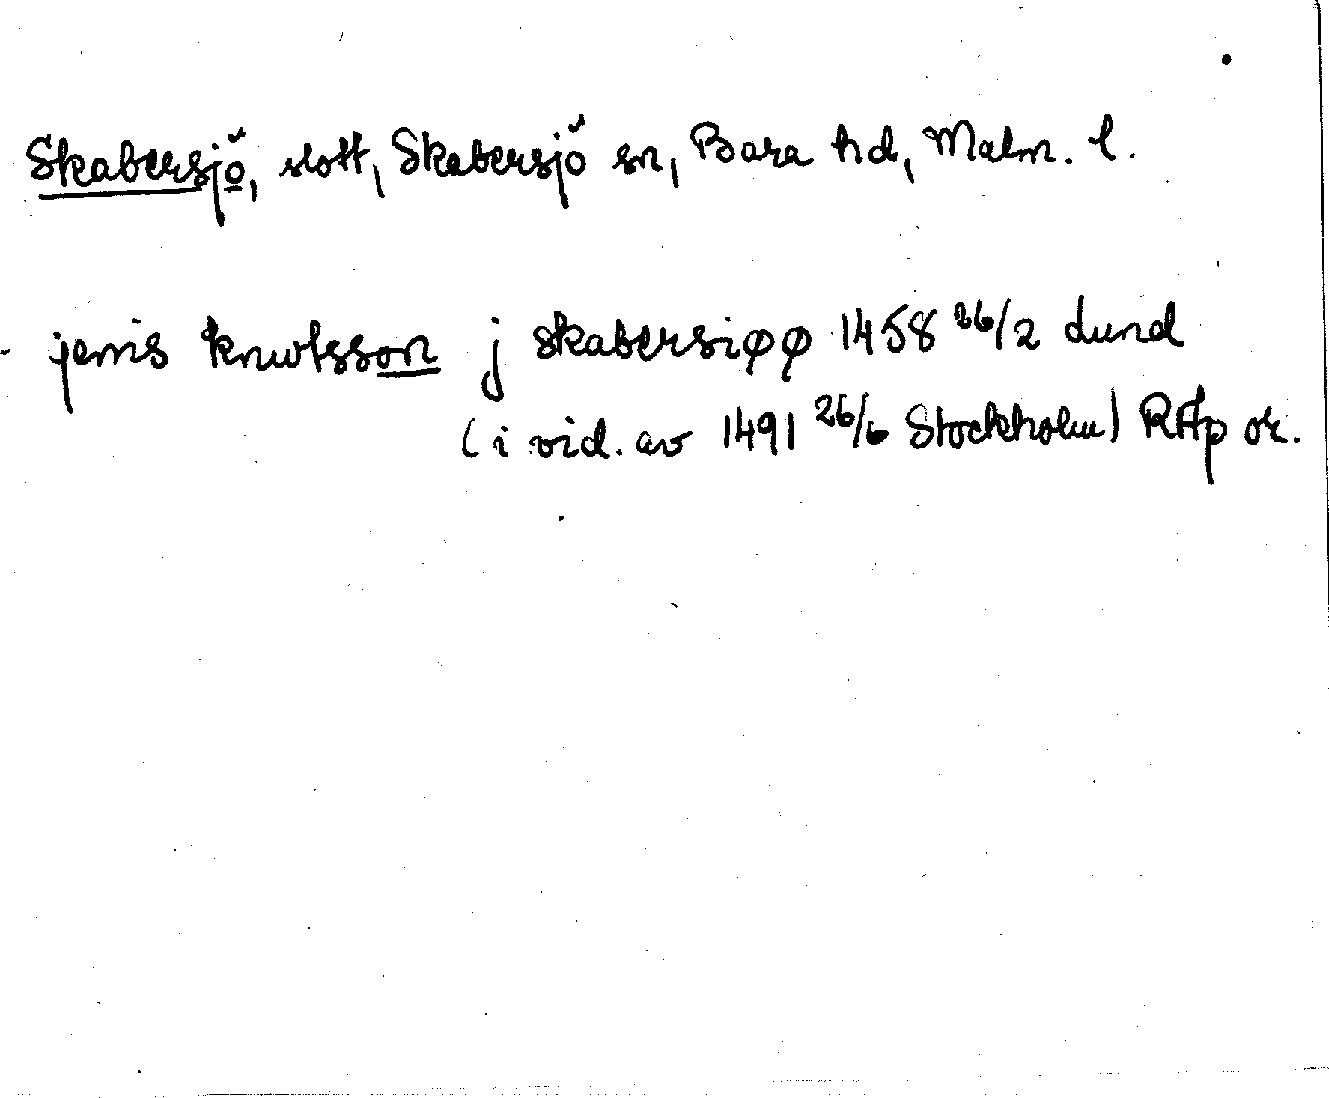 Skabersjö, slott, Skabersjö sn, Bara hd, Malm. l.
jenis knwtsson j skabersiøø 1458 26/2 Lund
(i vid. av 1491 26/6 Stockholm) RAp or.